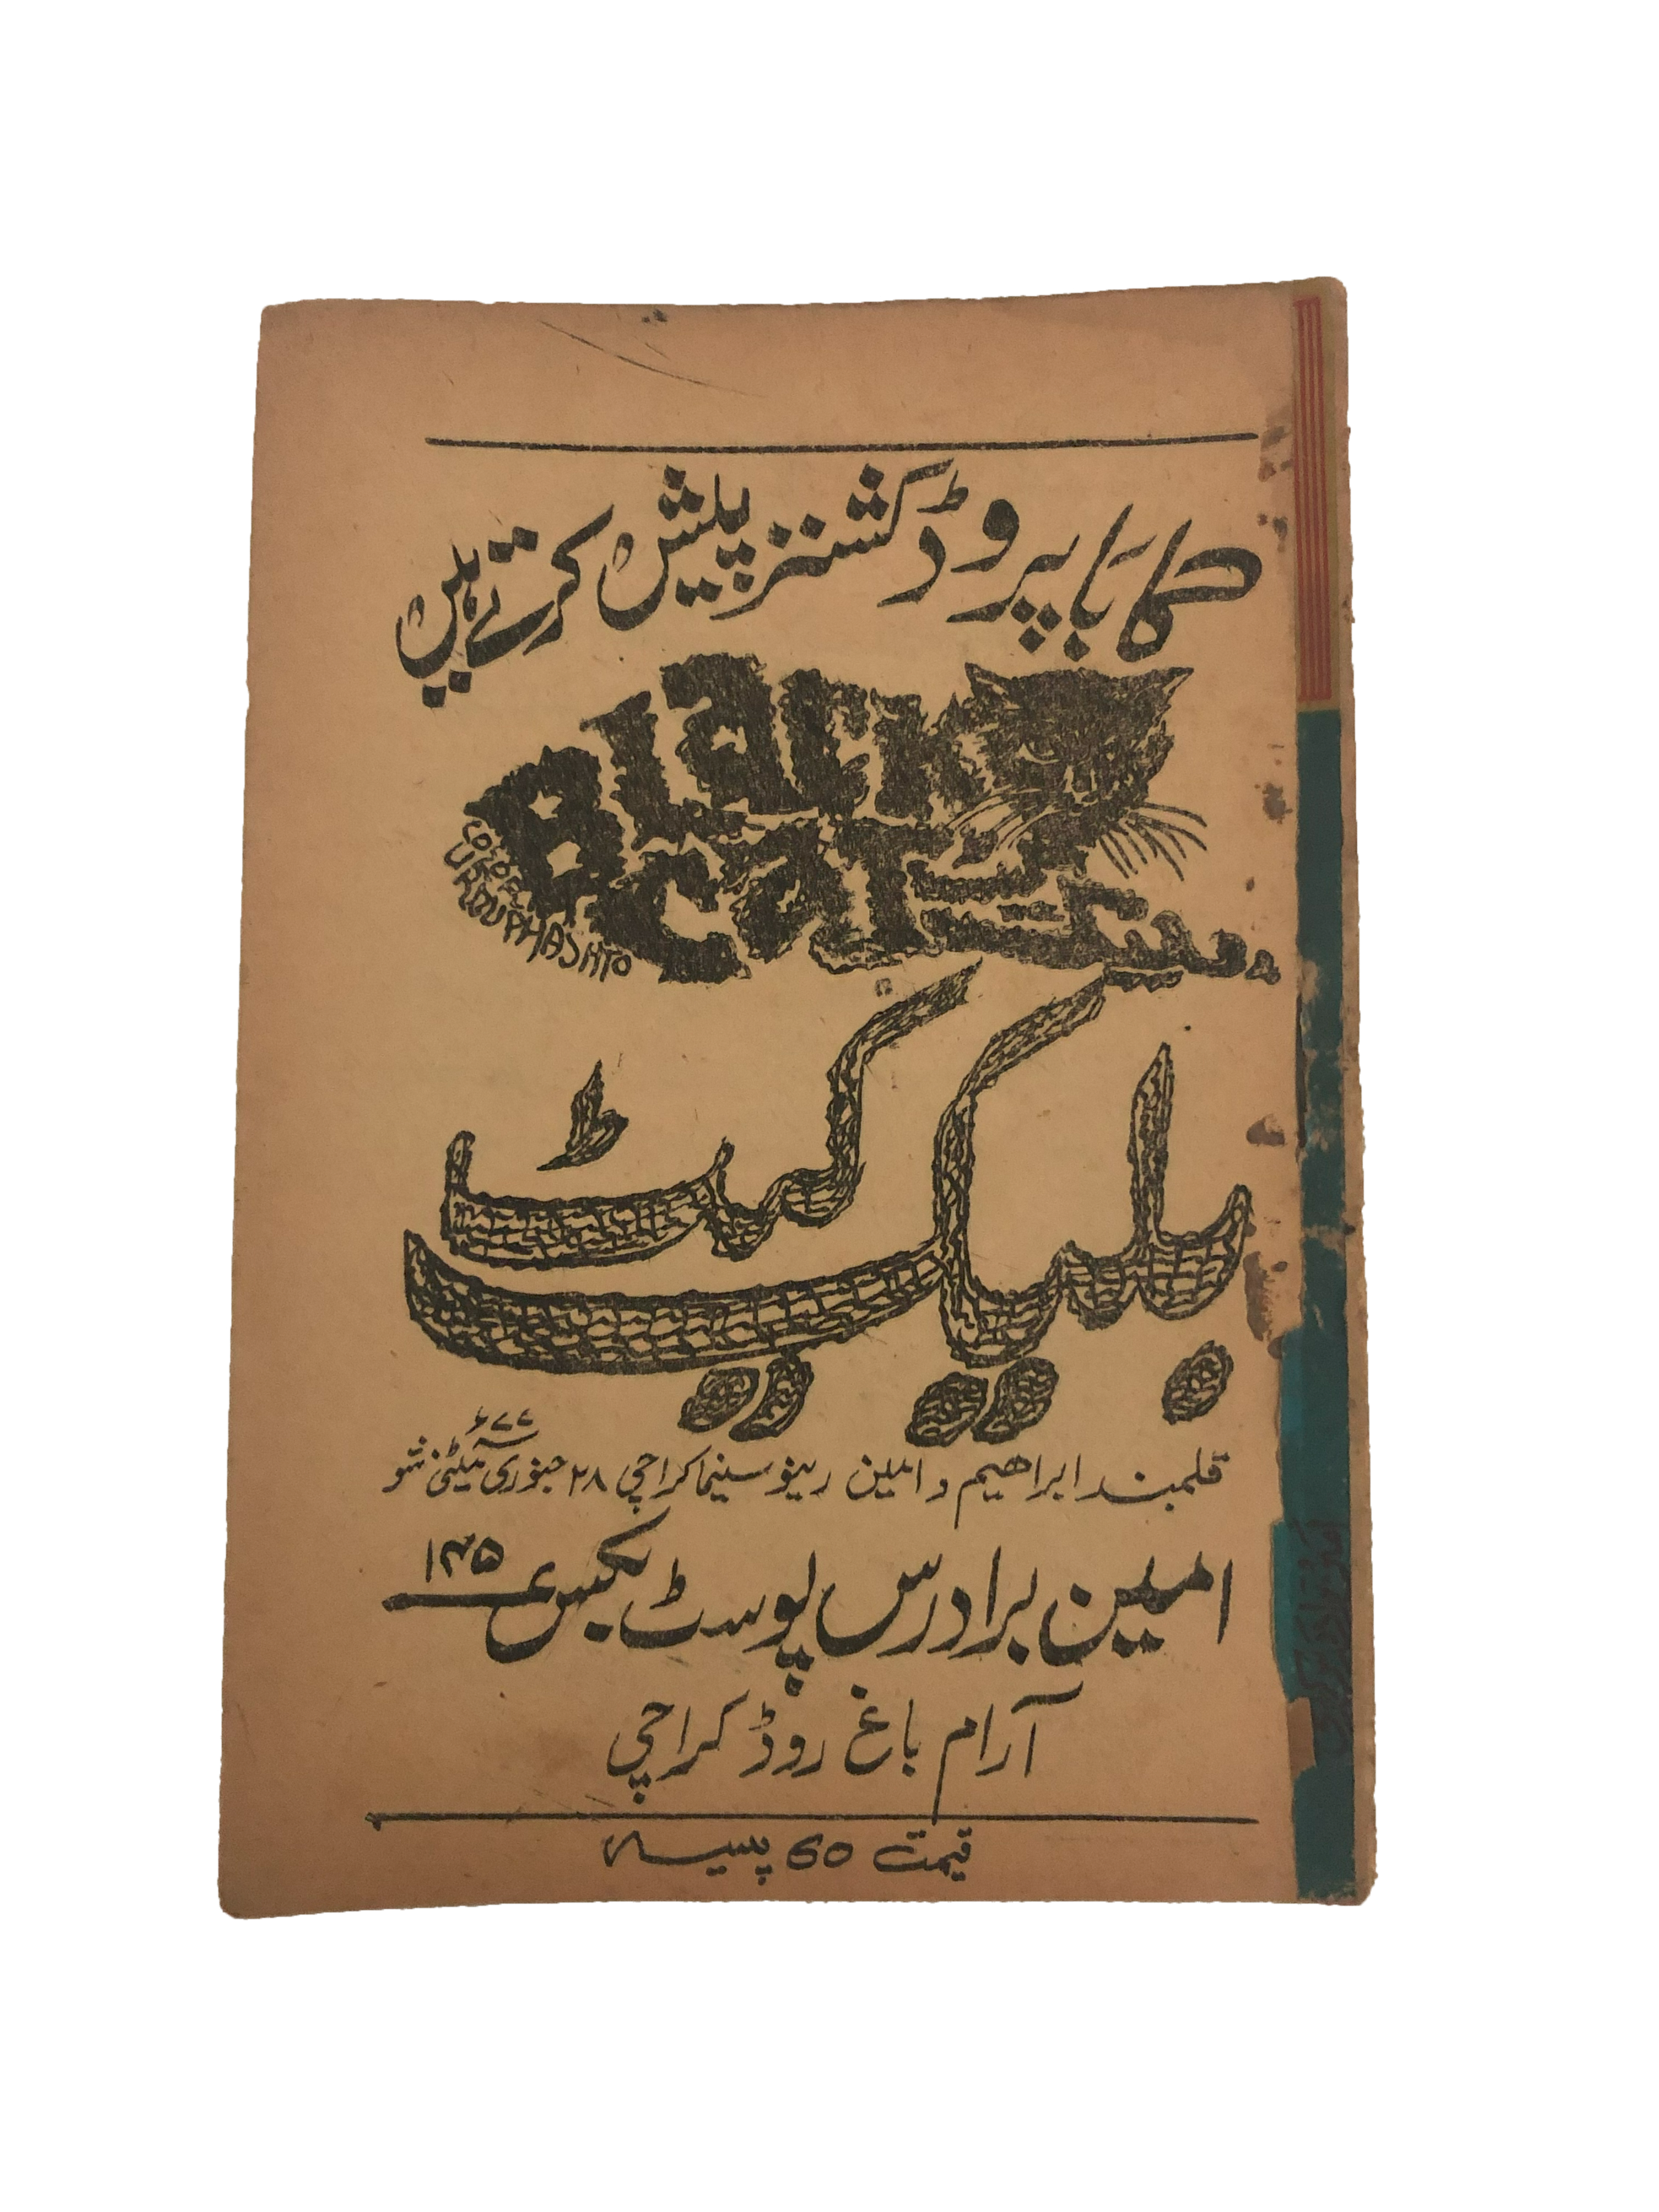 کابا پروڈکشنز پیش کرتے ہیں
BLACK
CAT
COLOR
URDU PHASHTO
بلیک کیٹ
قلمبند ابراھیم و امین رینو سینما کراچی ۲۸ جنوری ۷۷ء میٹنی شو
امین برادرس پوسٹ بکس ۱۴۵
آرام باغ روڈ کراچی
قیمت 60 پیسہ